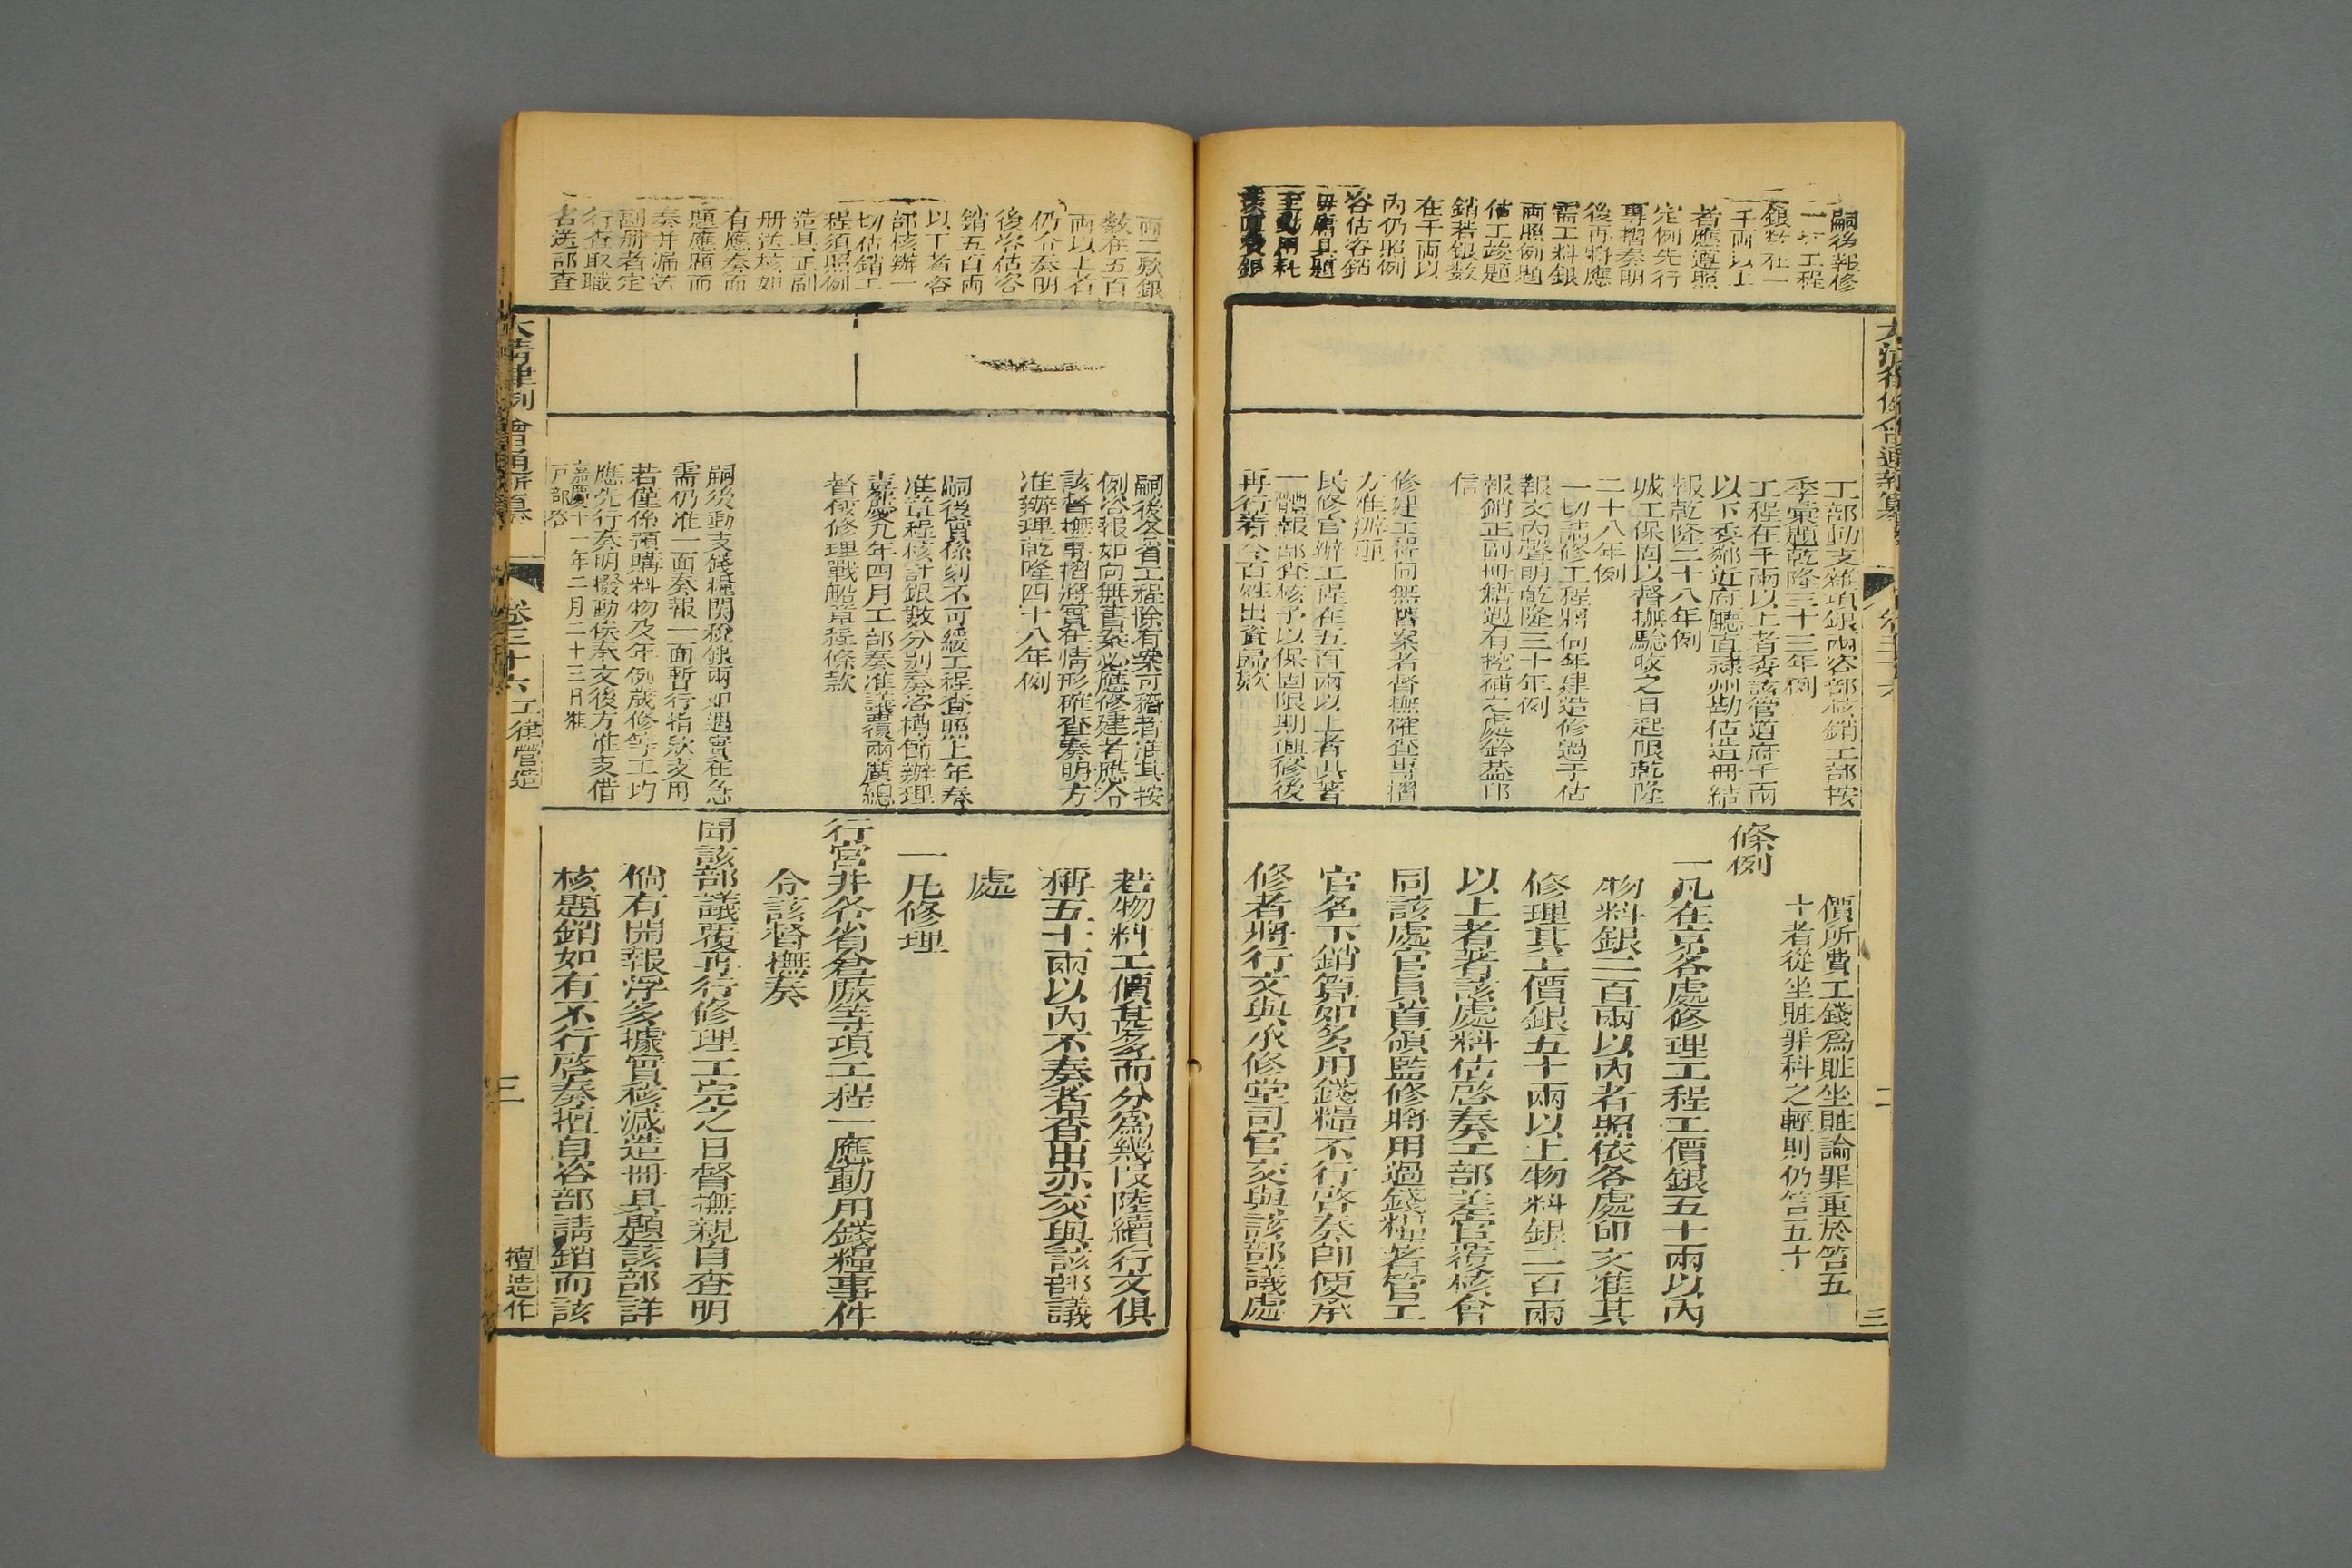 嗣後報修
一切工程
銀數在一
千兩以上
者應遵照
定例先行
專摺奏明
後再將應
需工料銀
兩照例題
估工竣題
銷若銀數
在千兩以
內仍照例
咨估咨銷
毋庸具題
至動用耗
羨
工部動支雜項銀兩咨部核銷工部按
季彙題乾隆三十三年例
工程在千兩以上者委該管道府千兩
以下委鄰近府廳直隷州勘估造冊結
報乾隆二十八年例
城工保固以督撫驗收之日起限乾隆
二十八年例
一切請修工程將何年建造修過于估
報文內聲明乾隆三十年例
報銷正副冊籍遇有挖補之處鈐蓋印
信
修建工程向無舊案者督撫確查專摺
方准辦理
民修官辦工程在五百兩以上者俱著
一體報部查核予以保固限期興修後
再行着令百姓出資歸欵
價所費工錢爲賍坐賍論罪重於笞五
十者從坐賍罪科之輕則仍笞五十
條例
一凡在京各處修理工程工價銀五十兩以內
物料銀二百兩以內者照依各處印文准其
修理其工價銀五十兩以上物料銀二百兩
以上者著該處料估啓奏工部差官覆核會
同該處官員首領監修將用過錢糧著管工
官名下銷算如多用錢糧不行啓奏卽便承
修者將行文與承修堂司官交與該部議處
二
兩二欵銀
數在五百
兩以上者
仍令奏明
後咨估咨
銷五百兩
以下者咨
部核辦一
切估銷工
程須照例
造具正副
冊送核如
有應奏而
題應題而
奏并漏送
副冊者定
行查取職
名送部查
嗣後各省工程除有案可稽者准其按
例咨報如向無舊案必應修建者應令
該督撫專摺將實在情形確查奏明方
准辦理乾隆四十八年例
嗣後實係刻不可緩工程查照上年奏
准章程核計銀數分别奏咨樽節辦理
嘉慶九年四月工部奏准議覆兩廣總
督條修理戰船章程條款
嗣後動支錢糧関稅銀兩如遇實在急
需仍准一面奏報一面暫行指欵支用
若僅係預購料物及年例歲修等工均
應先行奏明撥動俟奉文後方准支借
嘉慶十一年二月二十三日准
戸部咨
若物料工價甚多而分爲幾段陸續行文俱
稱五十兩以內不奏者查出亦交與該部議
處
一凡修理
行宮并各省倉厫等項工程一應動用錢糧事件
令該督撫奏
聞該部議覆再行修理工完之日督撫親自查明
倘有開報浮多據實核減造冊具題該部詳
核題銷如有不行啓奏擅自咨部請銷而該
大清律例會通新纂
卷三十六
工律營造
三
擅造作